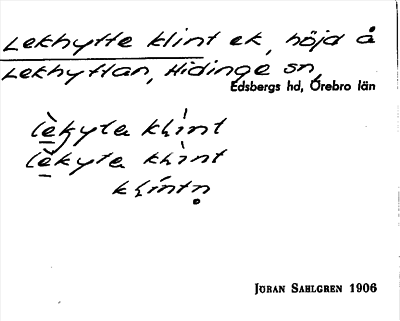 Lekhytte klint ek, höjd å
Lekhyttan, Hidinge sn,
Edsbergs hd, Örebro län
lèkyta klìnt
lèkyta klìnt
klíntn̥
JÖRAN SAHLGREN 1906